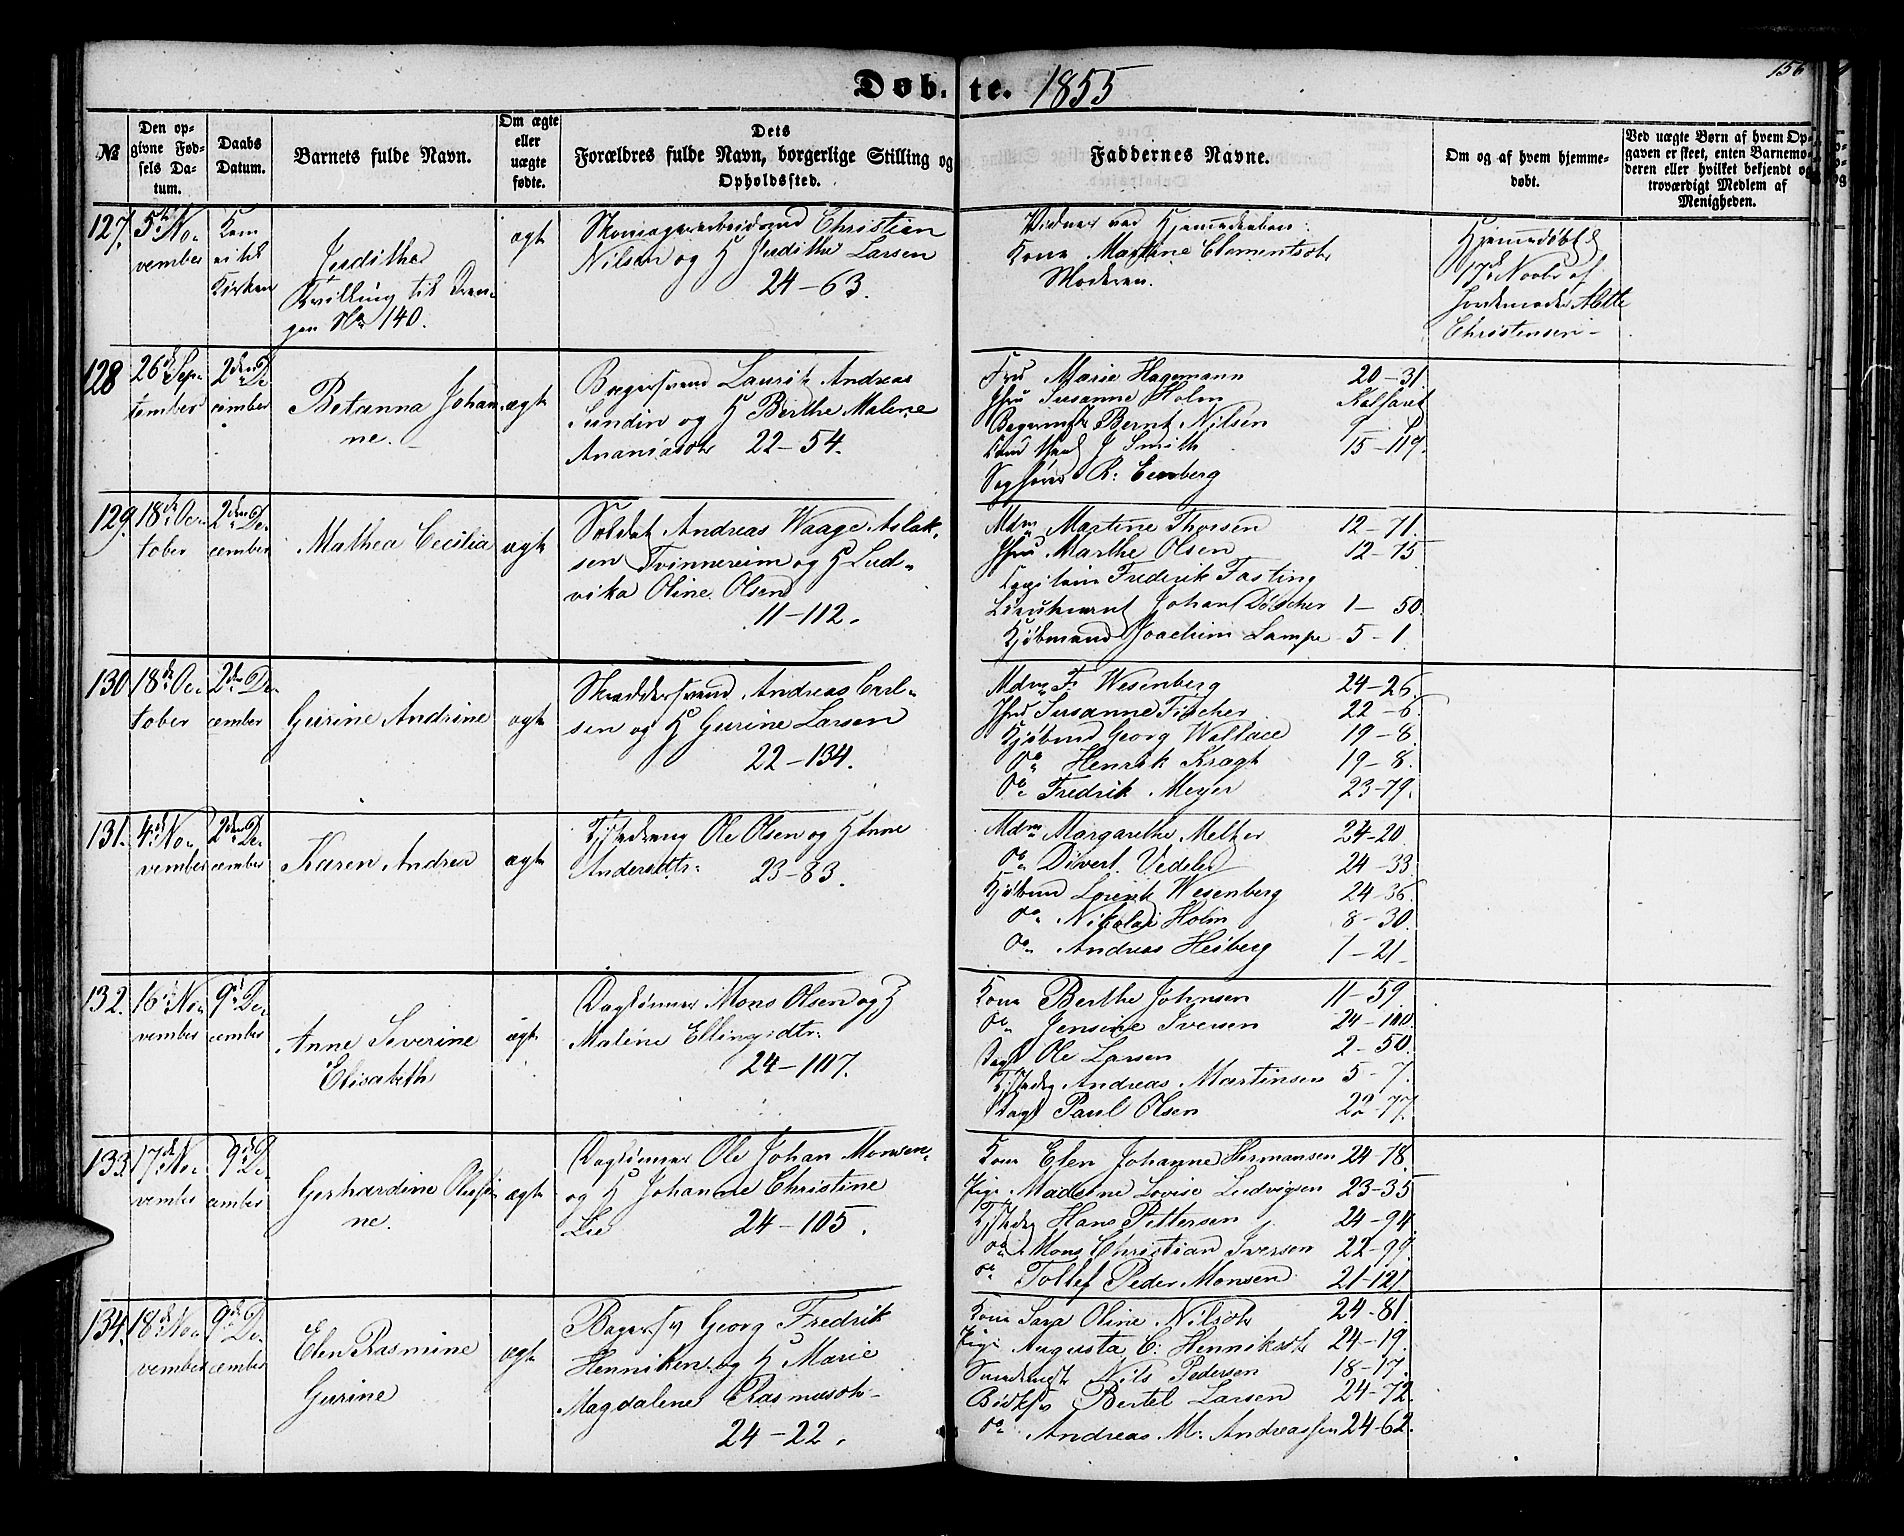 Døb. te. 1855
156
№
Den op-
givne Fød-
sels Da-
tum.
Daabs
Datum.
Barnets fulde Navn.
Om ægte
eller
uægte
fødte.
Dets
Forældres fulde Navn, borgerlige Stilling og
Opholdssted.
Faddernes Navne.
Om og af hvem hjemme-
døbt.
Ved uægte Børn af hvem Op-
gaven er skeet, enten Barnemo-
deren eller hvilket bekjendt og
troværdigt Medlem af
Menigheden.
127.
5te No-
vember
Kom
ei til
Kirken
Judithe
Tvilling til Dren-
gen No 140.
ægte
Christian
Nilsen og H Judithe Larsen
24-63.
Vidner ved Hjemmedaaben:
Kone Martine Clementsdtr
Moderen.
Hjemmedøbt d
17de Novbr af
Jordemoder Mette
Christensen-
128
26de Sep-
tember
2den De-
cember
Betanna Johan-
ne.
ægte
Bagersvend Lauritz Andreas
Sundin og H Berthe Malene
Ananiasdtr 22-54.
Fru Marie Hagemann 20-31
Jfru Susanne Holm Kalfaret
Bagermstr Bernt Nilsen
J Smith 15-119.
129.
18de Oc-
tober
2den De-
cember
Mathea Cecilia
ægte
Soldat Andreas Waage Aslak-
sen Tvinnereim og H Lud-
vika Oline Olsen
11-112.
Mdm Martine Thorsen 12-71.
Jfru Marthe Olsen 12-75
Capitain Frederik Fasting
Lieutenant Johan Dølscher 1-50.
Kjøbmand Joachim Lampe 5-1.
130
18de Oc-
tober
2den De-
cember
Gurine Andrine
ægte
Skræddersvend Andreas Carl-
sen og H Gurine Larsen
22-134.
Mdm F. Wesenberg 24-26.
Jfru Susanne Fischer 22-6
Kjøbmd Georg Wallace 19-8.
do Henrik Kragh 19-8.
do Fredrik Meyer 23-79.
131.
4de No-
vember
2den De-
cember
Karen Andrea
ægte
Ole Olsen og H Anne
Andersdtr. 23-83.
Mdm Margarethe Meltzer 24-20
do Divert. Vedeler 24-33
Kjøbmd Wesenberg 24-36
do Nikolai Holm 8-30
do Andreas Heiberg 1-21.
132.
16de No-
vember
9de De-
cember
Anne Severine
Elisabeth
ægte
Daglønner Mons Olsen og H
Malene Ellingsdtr.
24-107.
Kone Berthe Johnsen 11-59.
do Jensine Iversen 24-100.
Dagl Ole Larsen 2-50.
Andreas Martinsen 5-7.
Dagl Paul Olsen 22-77.
133.
17de No-
vember
9de De-
cember
Gerhardine Olufi-
ne.
ægte
Daglønner Ole Johan Monsen
og H Johanne Christine
Lie 24-105.
Kone Elen Johanne Hermansen 24-78.
Pige Madsine Lovise Ludvigsen 23-35
Hans Pettersen 24-94
do Mons Christian Iversen 22-99
do Tollef Peder Monsen 21-121
134.
18de No-
vember
9de De-
cember
Elen Rasmine
Gurine
ægte
Bagersv Georg Fredrik
Henniken og H Marie
Magdalene Rasmusdtr-
24-22.
Kone Sara Oline Nilsdtr 24-81.
Pige Augusta C: 24-19.
Nils Pedersen 18-17.
Bødksv Bertel Larsen 24-72.
do Andreas M. Andreassen 24-62.